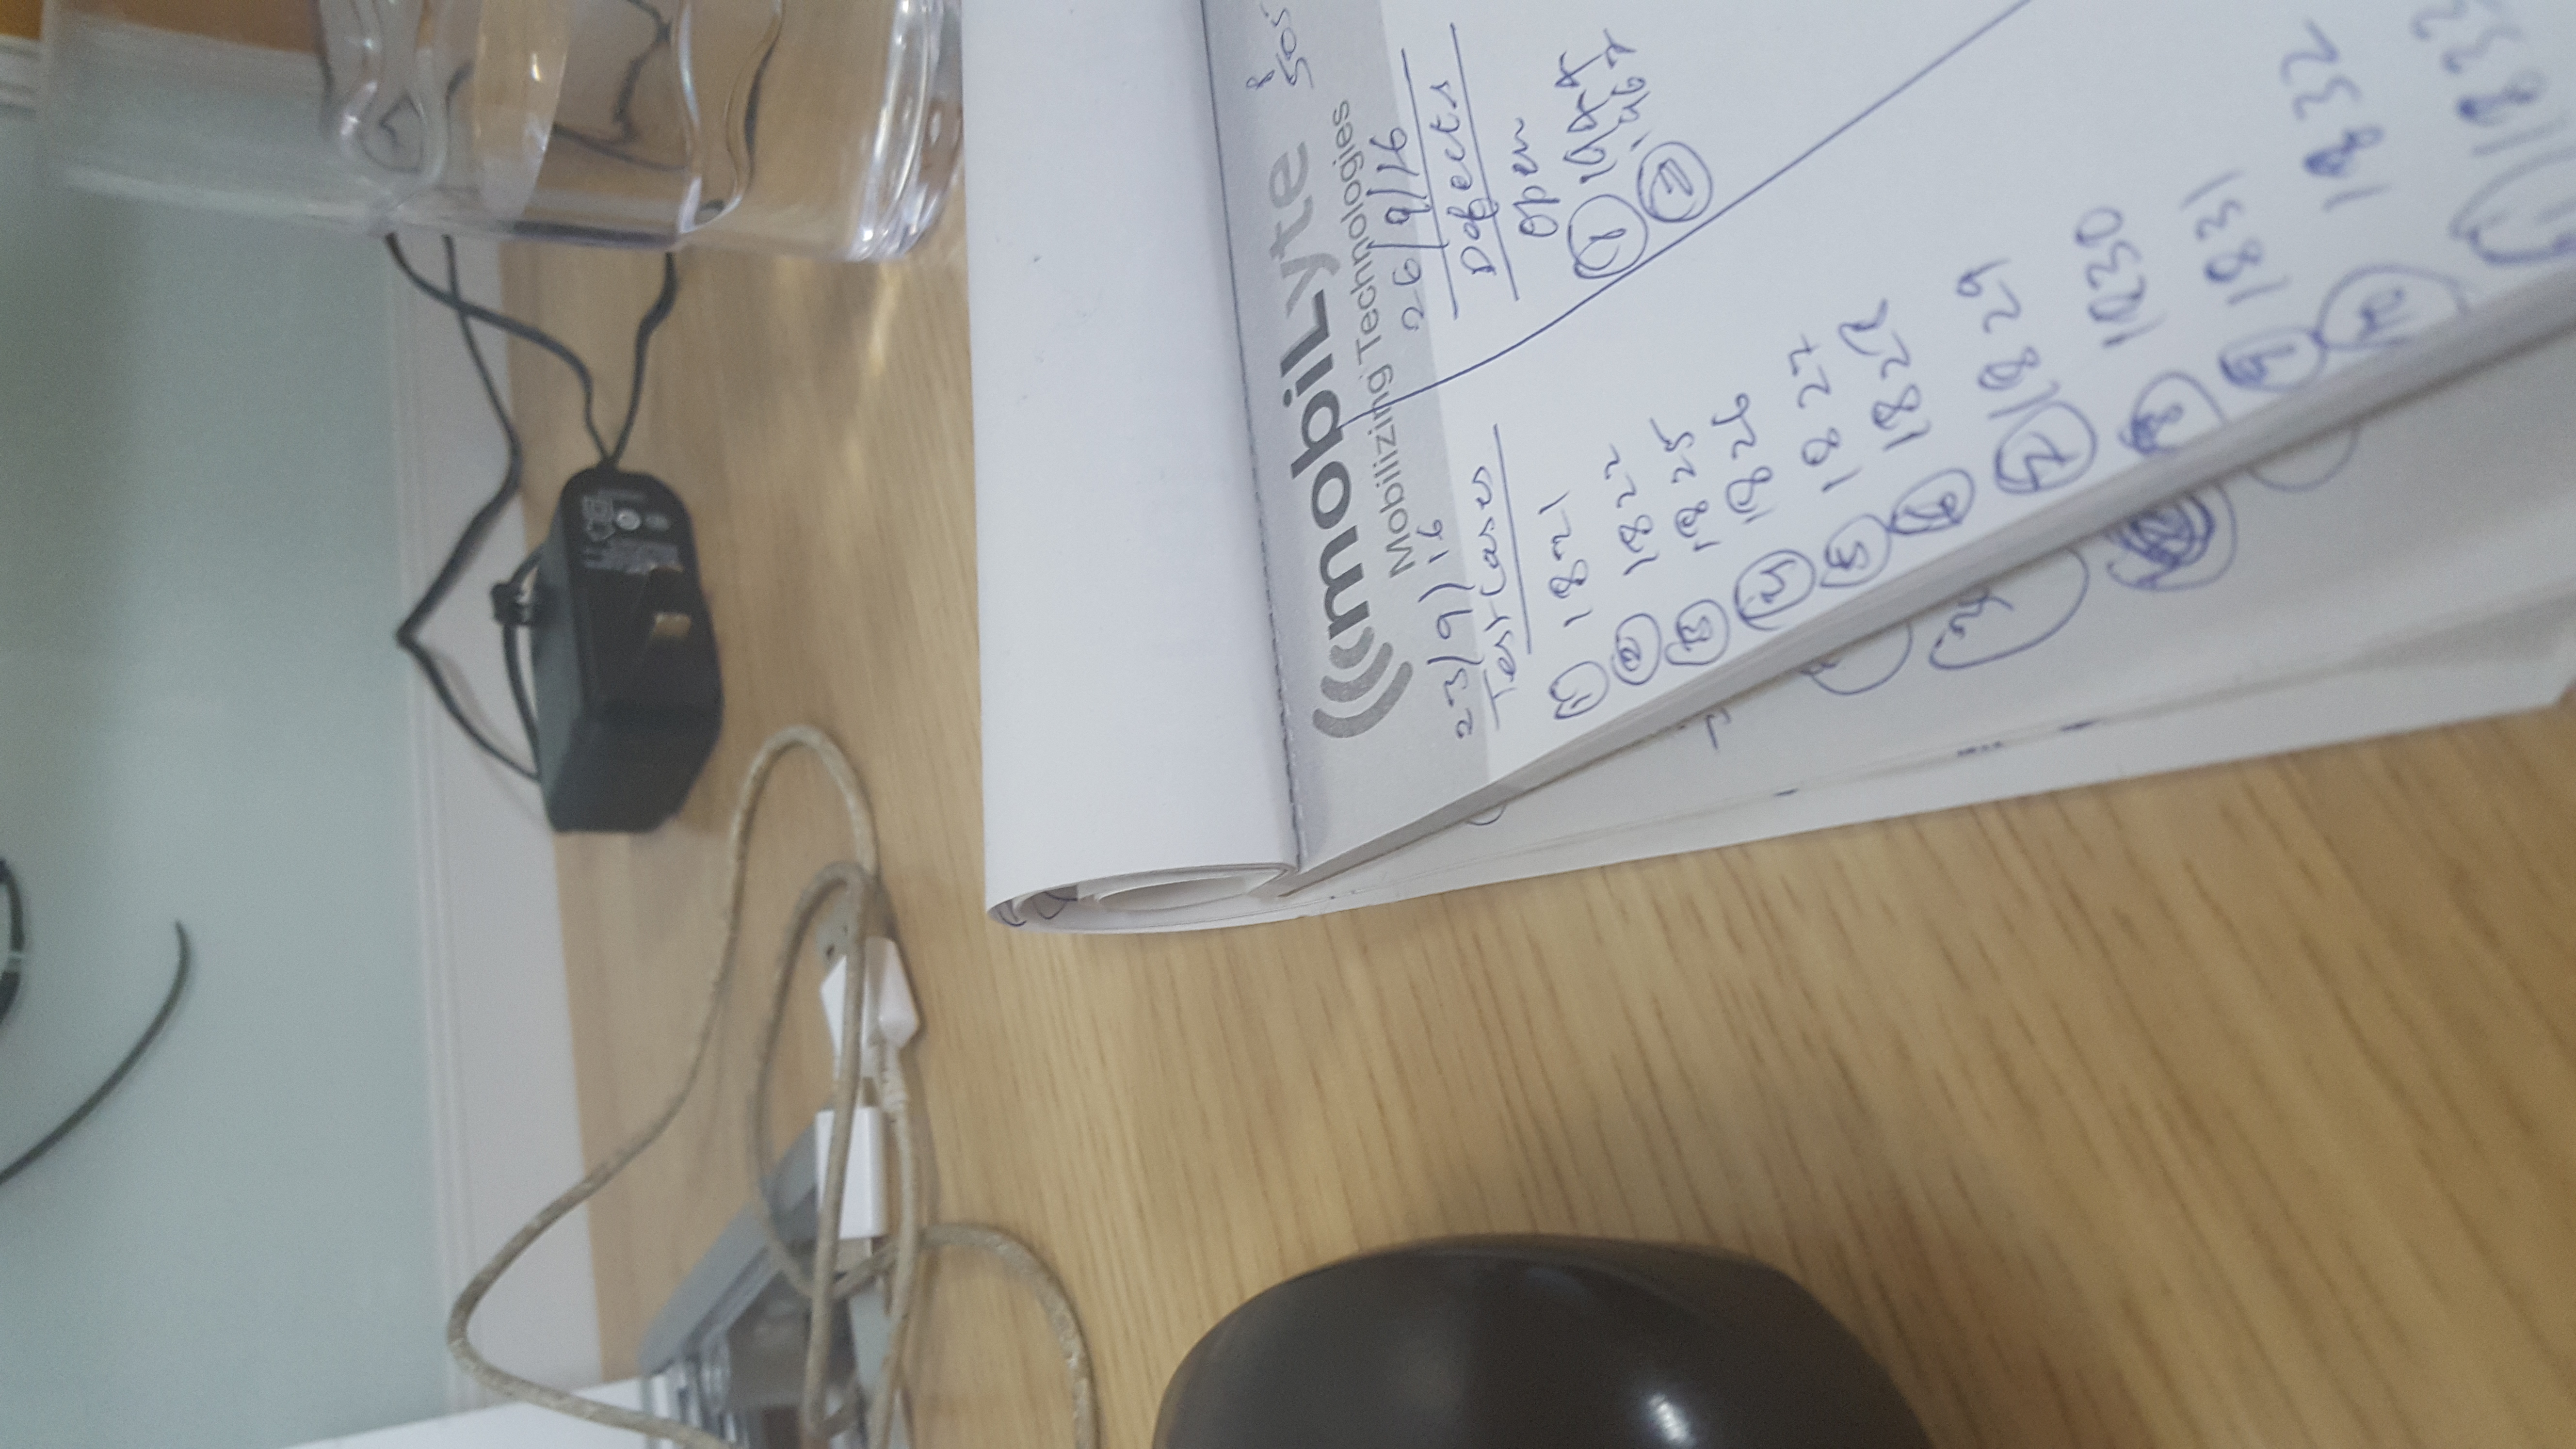 mobiLyte
Mobilizing Technologies
23/9/16
Test Cases
1 1821
2 1822
3 1825
4 1826
5 1827
6 1828
7 1829
8 1830
9 1831
10 1832
1833
26/9/16
Defects
Open
1 1944
2 1967